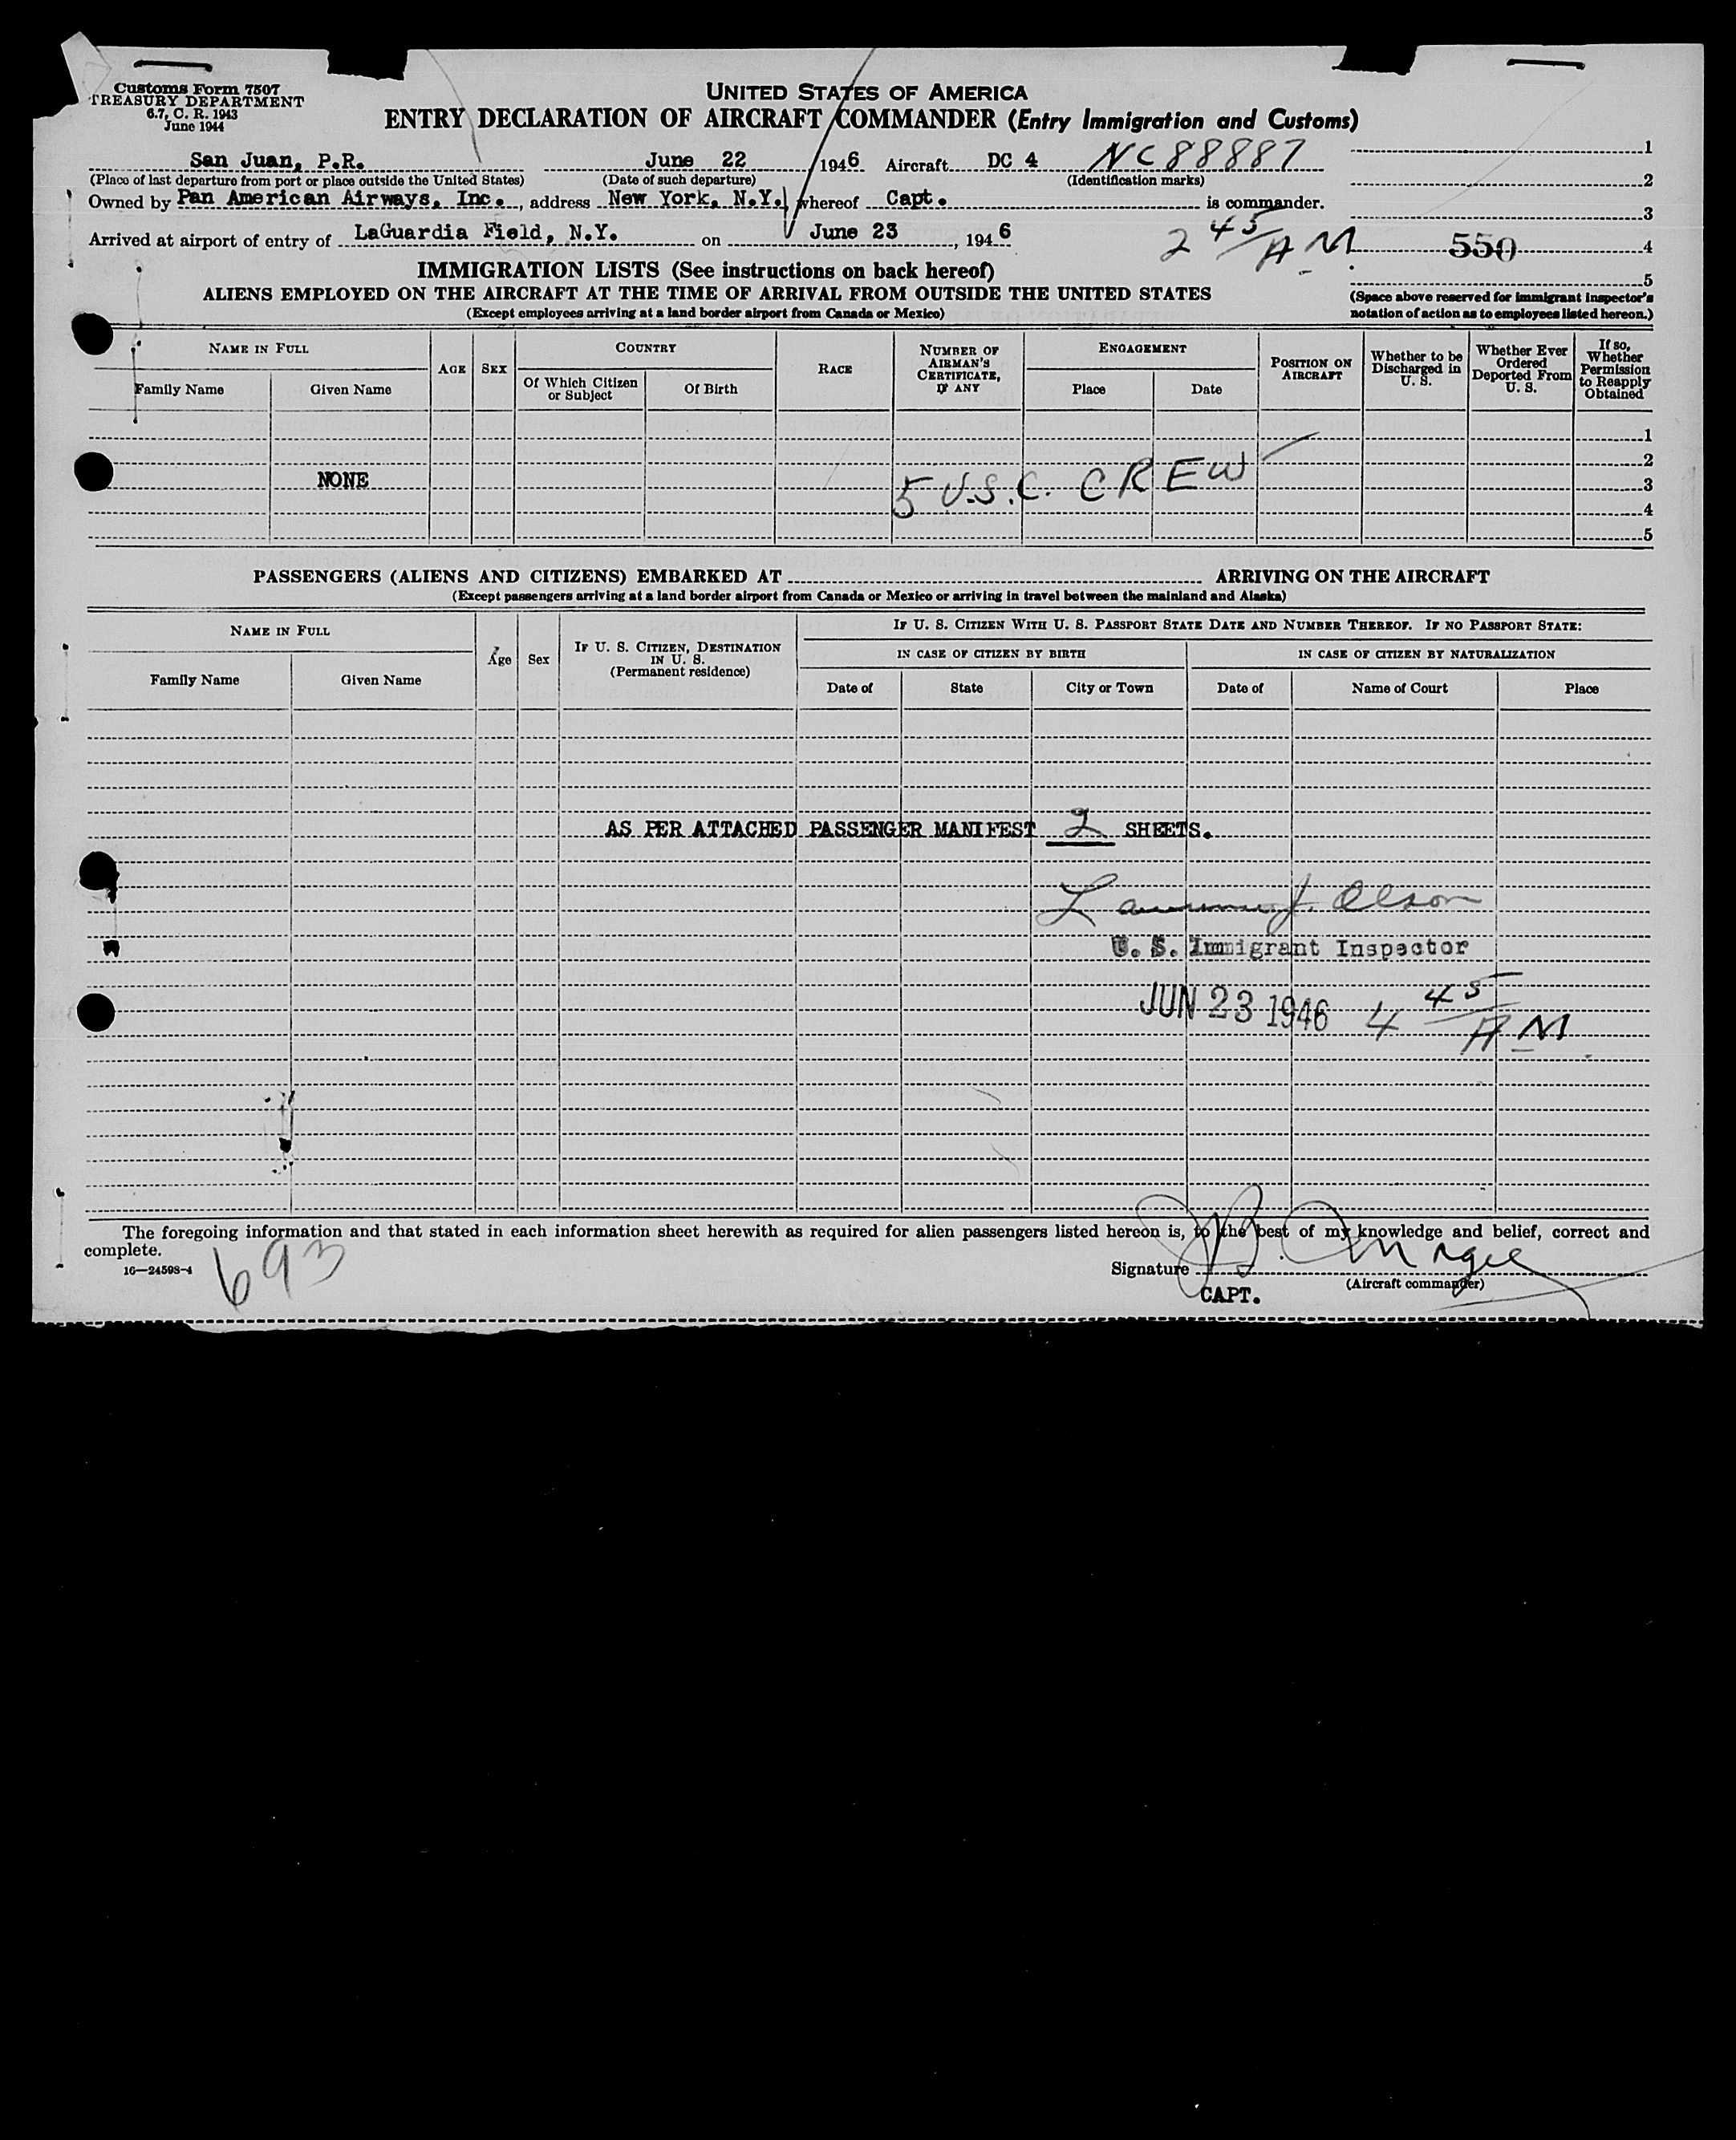 Customs Form 7507
TREASURY DEPARTMENT
6.7, C. R. 1943
June 1944
UNITED STATES OF AMERICA
ENTRY DECLARATION OF AIRCRAFT COMMANDER (Entry Immigration and Customs)
San Juan, P.R. June 22 1946 Aircraft DC 4 NC88887
(Place of last departure from port or place outside the United States) (Date of such departure) (Identification marks)
Owned by Pan American Airways, Inc., address New York, N.Y. whereof Capt. is commander.
Arrived at airport of entry of LaGuardia Field, N.Y. on June 23, 1946 2 45/AM
1
2
3
550 4
5
(Space above reserved for immigrant inspector's
notation of action as to employees listed hereon.)
IMMIGRATION LISTS (See instructions on back hereof)
ALIENS EMPLOYED ON THE AIRCRAFT AT THE TIME OF ARRIVAL FROM OUTSIDE THE UNITED STATES
(Except employees arriving at a land border airport from Canada or Mexico)
NAME IN FULL
Family Name Given Name
AGE SEX
COUNTRY
Of Which Citizen or Subject Of Birth
RACE
NUMBER OF AIRMAN'S CERTIFICATE, IF ANY
ENGAGEMENT
Place Date
POSITION ON AIRCRAFT
Whether to be Discharged in U. S.
Whether Ever Ordered Deported From U. S.
If so, Whether Permission to Reapply Obtained
1
2
NONE 5 U.S.C. CREW 3
4
5
PASSENGERS (ALIENS AND CITIZENS) EMBARKED AT ARRIVING ON THE AIRCRAFT
(Except passengers arriving at a land border airport from Canada or Mexico or arriving in travel between the mainland and Alaska)
NAME IN FULL
Family Name Given Name
Age Sex
IF U. S. CITIZEN, DESTINATION IN U. S.
(Permanent residence)
IF U. S. CITIZEN WITH U. S. PASSPORT STATE DATE AND NUMBER THEREOF. IF NO PASSPORT STATE:
IN CASE OF CITIZEN BY BIRTH IN CASE OF CITIZEN BY NATURALIZATION
Date of State City or Town Date of Name of Court Place
AS PER ATTACHED PASSENGER MANIFEST 2 SHEETS.
J. Olson
U. S. Immigrant Inspector
JUN 23 1946 4 45/AM
The foregoing information and that stated in each information sheet herewith as required for alien passengers listed hereon is, to the best of my knowledge and belief, correct and
complete.
16—24598-4 693
Signature
(Aircraft commander)
CAPT.